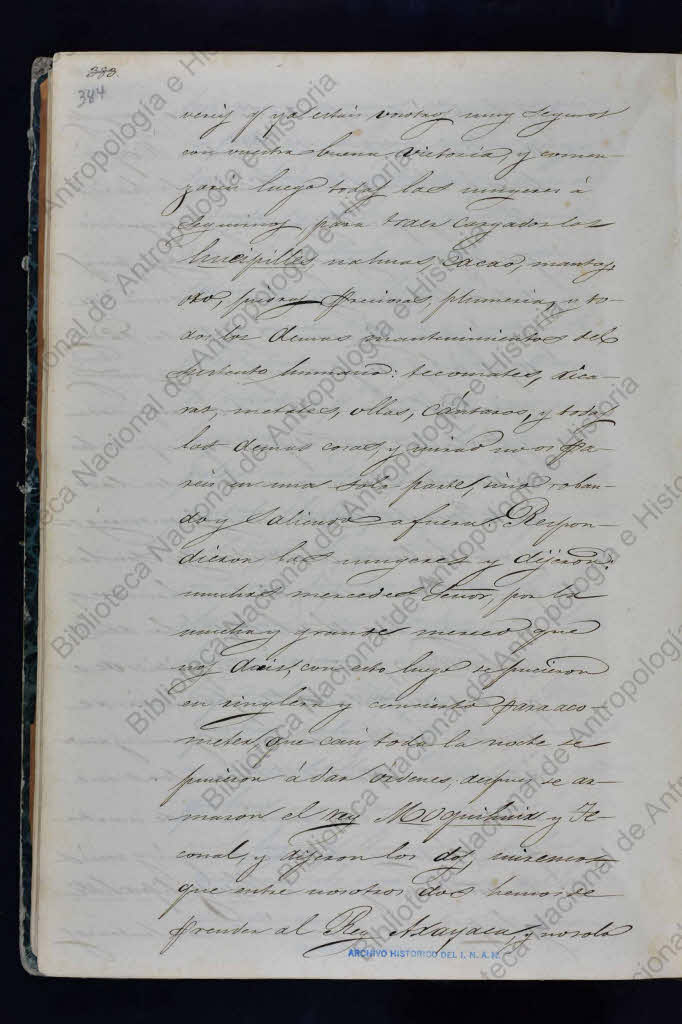 383.
384
vereis q.e ya estais vosotras muy seguras
con vuestra buena victoria, y comen-
zareis luego todas las mugeres á
seguirnos, para traer cargados los
hueipilles, nahuas, Cacao, mantas,
oro, piedras preciosas, plumeria, y to-
dos los demas mantenimientos del
sustento humano: tecomates, xica-
ras, metates, ollas, cántaros, y todas
las demas cosas, y mirad no os pa-
reis en una sola parte, sino roban-
do y saliendo afuera. Respon-
dieron las mugeres y dijeron:
muchas mercedes Señor, por la
mucha y grande merced que
nos dais, con esto luego se pusieron
en ringlera y concierto para aco-
meter, que casi toda la noche se
pusieron á dar ordenes, despues se ar-
maron el rey Moquihuix y Te-
conal, y dijeron los dos, miremos
que entre nosotros dos hemos de
prender al Rey Axayaca, y no solo
ARCHIVO HISTORICO DEL I. N. A. H.
Biblioteca Nacional de Antropología e Historia